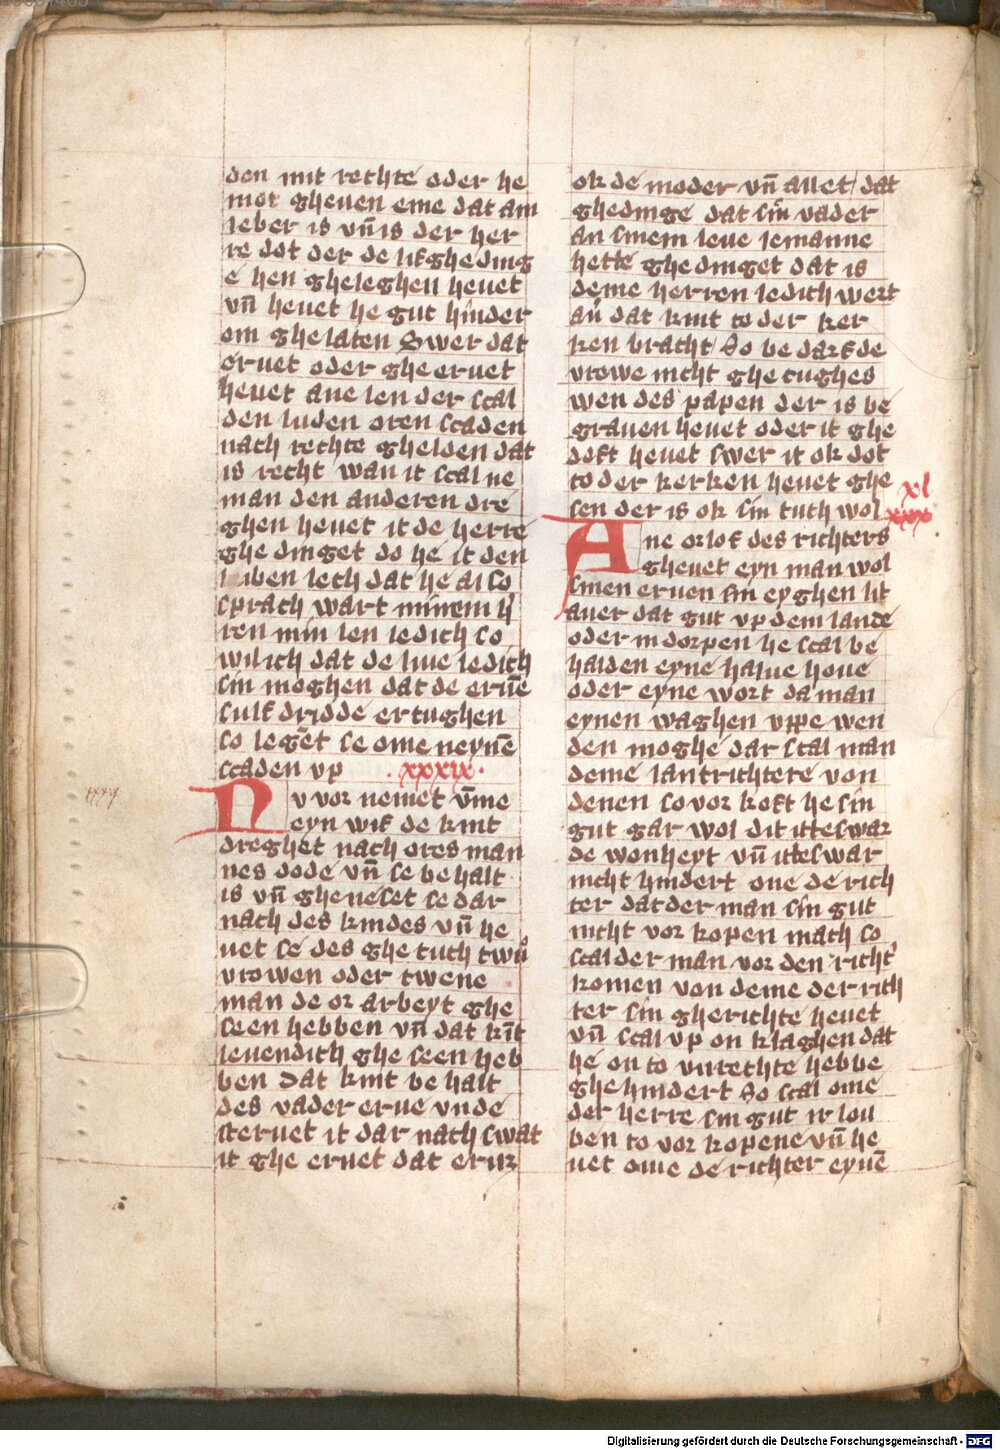 den mit rechte oder he
mot gheuen eme dat am
leber is vn̄ is der her
re dot der de likgheding
e hen gheleghen heuet
vn̄ heuet he gut hinder
om ghelaten Swer dat
eruet oder ghe eruet
heuet ane len der scal
den luden oren scaden
nach rechte ghelden dat
is recht wan it scal ne
man den anderen dre
ghen heuet it de herre
ghe dinget do he it den
luben lech dat he al so
sprach wart minem h̾
ren min len ledich so
wil ich dat de luue ledich
sin moghen dat de erue̅
sulf dridde ertughen
so leget se ome neyne̅
scaden vp .xxxix.
xxxix
Nv vor nemet vm̄e
eyn wif de kint
dreghet nach ores man
nes dode vn̄ se behalt
is vn̄ gheneset se dar
nach des kindes vn̄ he
uet se des ghe tuch twu͛
vrowen oder twene
man de or arbeyt ghe
seen hebben vn̄ dat ki̅t
leuendich ghe seen heb
ben dat kint be halt
des vader erue vnde
steruet it dar nach swat
it ghe eruet dat erur
ok de moder vn̄ allet dat
ghedinge dat sin vader
an sinem leue iemanne
hette ghe dinget dat is
deme herren ledich wert
au̅ dat kint to der ker
ken bracht So be darf de
vrowe nicht ghe tughes
wen des papen der is be
grauen heuet oder it ghe
doft heuet swer it ok dot
to der kerken heuet ghe
sen der is ok sin tuch wol
xl
xxx
Ane orlof des richters
gheuet eyn man wol
sinen eruen sin eyghen lit
auer dat gut vp dem lande
oder in dorpen he scal be
halden eyne halue houe
oder eyne wort da man
eynen waghen vppe wen
den moghe dar scal man
deme lantrichtere von
denen so vor koft he sin
gut gar wol dit itteswar
de wonheyt vn̄ itteswar
nicht hindert one de rich
ter dat der man sin gut
nicht vor kopen mach so
scal der man vor den richt̾
komen von deme der rich
ter sin gherichte heuet
vn̄ scal vp on klaghen dat
he on to vnrechte hebbe
ghe hindert So scal ome
der herre sin gut ir lou
ben to vor kopene vn̄ he
uet ome de richter eyne̅
Digitalisierung gefördert durch die Deutsche Forschungsgemeinschaft - DFG